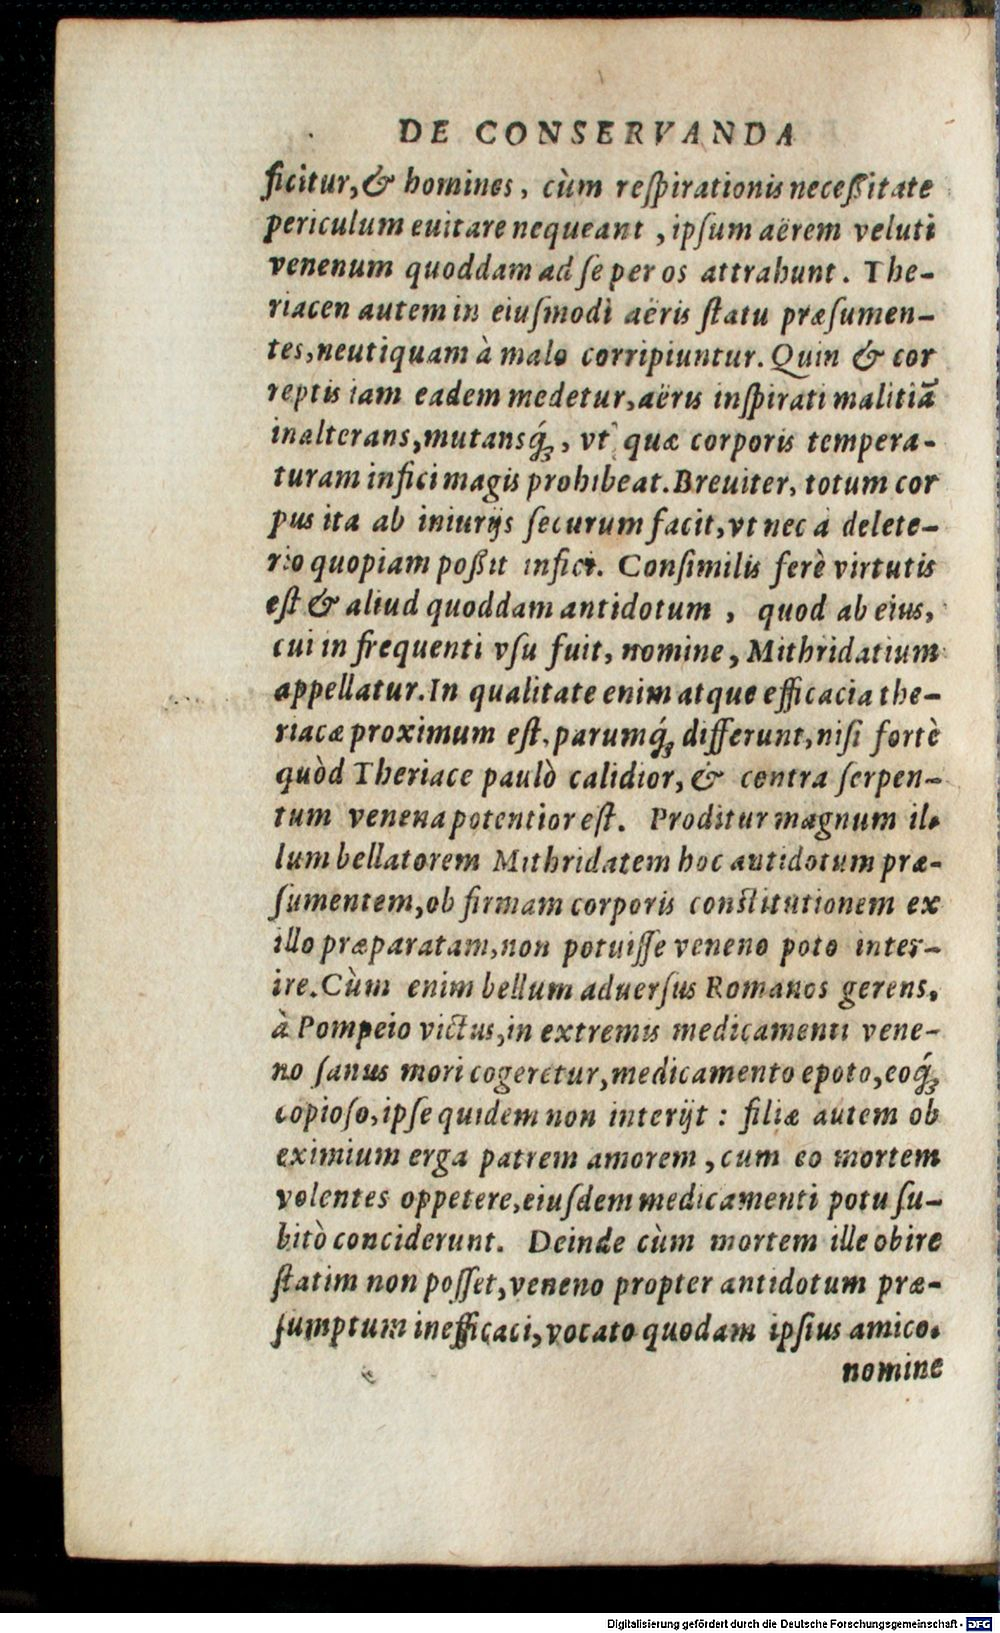 DE CONSERVANDA
ficitur, & homines, cùm reſpirationis neceſſitate
periculum euitare nequeant, ipſum aërem veluti
venenum quoddam ad ſe per os attrahunt. The-
riacen autem in eiuſmodi aëris ſtatu præſumen-
tes, neutiquam à malo corripiuntur. Quin & cor
reptis iam eadem medetur, aëris inſpirati malitiã
inalterans, mutansq́;, vt quæ corporis tempera-
turam infici magis prohibeat. Breuiter, totum cor
pus ita ab iniurijs ſecurum facit, vt nec à delete-
rio quopiam poſſit infici. Conſimilis ferè virtutis
eſt & aliud quoddam antidotum, quod ab eius,
cui in frequenti vſu fuit, nomine, Mithridatium
appellatur. In qualitate enim atque efficacia the-
riacæ proximum eſt, parumq́; differunt, niſi fortè
quòd Theriace paulò calidior, & contra ſerpen-
tum venena potentior eſt. Proditur magnum il-
lum bellatorem Mithridatem hoc antidotum præ-
ſumentem, ob firmam corporis conſtitutionem ex
illo præparatam, non potuiſſe veneno poto inter-
ire. Cùm enim bellum aduerſus Romanos gerens,
à Pompeio victus, in extremis medicamenti vene-
no ſanus mori cogeretur, medicamento epoto, eoq́;
copioſo, ipſe quidem non interijt: filiæ autem ob
eximium erga patrem amorem, cum eo mortem
volentes oppetere, eiuſdem medicamenti potu ſu-
bitò conciderunt. Deinde cùm mortem ille obire
ſtatim non poſſet, veneno propter antidotum præ-
ſumptum inefficaci, vocato quodam ipſius amico,
nomine
Digitalisierung gefördert durch die Deutsche Forschungsgemeinschaft - DFG